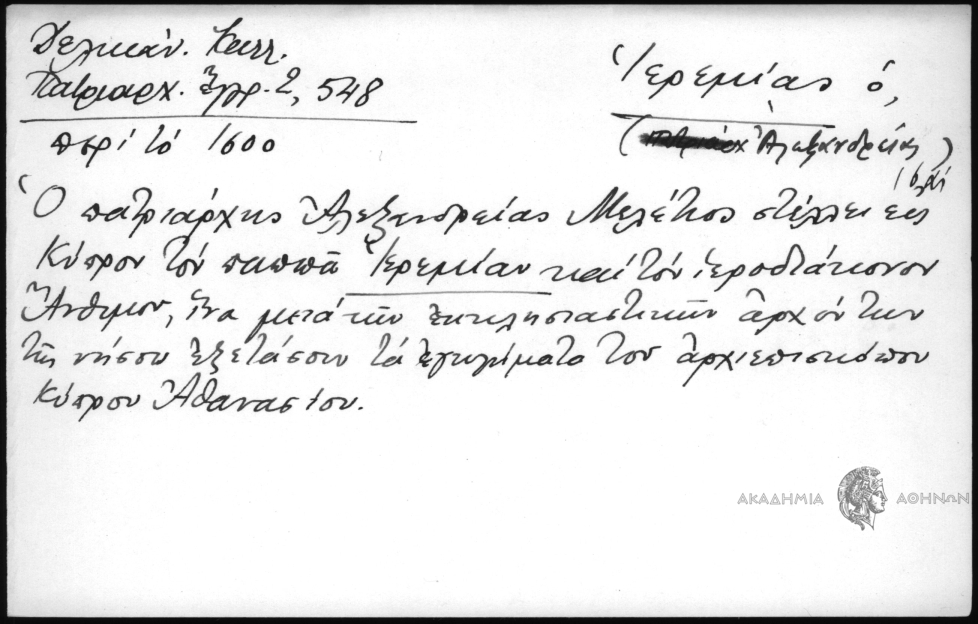 Δελικάν. Καλλ.
Πατριαρχ. Ἔγγρ. 2, 548
περί τό 1600
Ἱερεμίας ὁ,
( Ἀλεξανδρείας )
Ὁ πατριάρχης Ἀλεξανδρείας Μελέτιος στέλλει εἰς
Κύπρον τόν παππᾶ Ἱερεμίαν καί τόν ἱεροδιάκονον
Ἄνθιμον, ἵνα μετά τῶν ἐκκλησιαστικῶν ἀρχόντων
τῆς νήσου ἐξετάσουν τά ἐγκλήματα τοῦ ἀρχιεπισκόπου
Κύπρου Ἀθανασίου.
ΑΚΑΔΗΜΙΑ ΑΘΗΝΩΝ